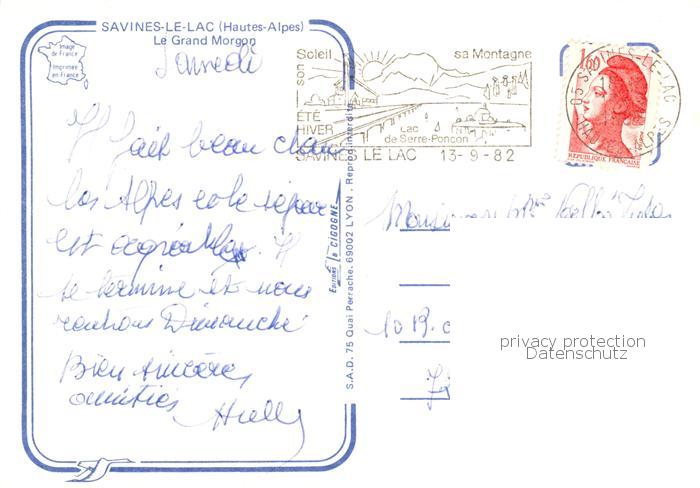 SAVINES-LE-LAC (Hautes-Alpes)
Le Grand Morgon
Image
de France
Imprimée
en France
Samedi
Il fait beau dans
les Alpes et le séjour
est agréable. Il
se termine et nous
rentrons Dimanche
Bien sincères
amitiés
Soleil
son
sa Montagne
ÉTÉ
HIVER
Lac
de Serre-Ponçon
SAVINES LE LAC 13-9-82
1,60
REPUBLIQUE FRANÇAISE
05 SAVINES-LE-LAC
Editions la CIGOGNE
S.A.D. 75 Quai Perrache. 69002 LYON - Reprod. interdite
Monsieur et Mme
10 R.
privacy protection
Datenschutz